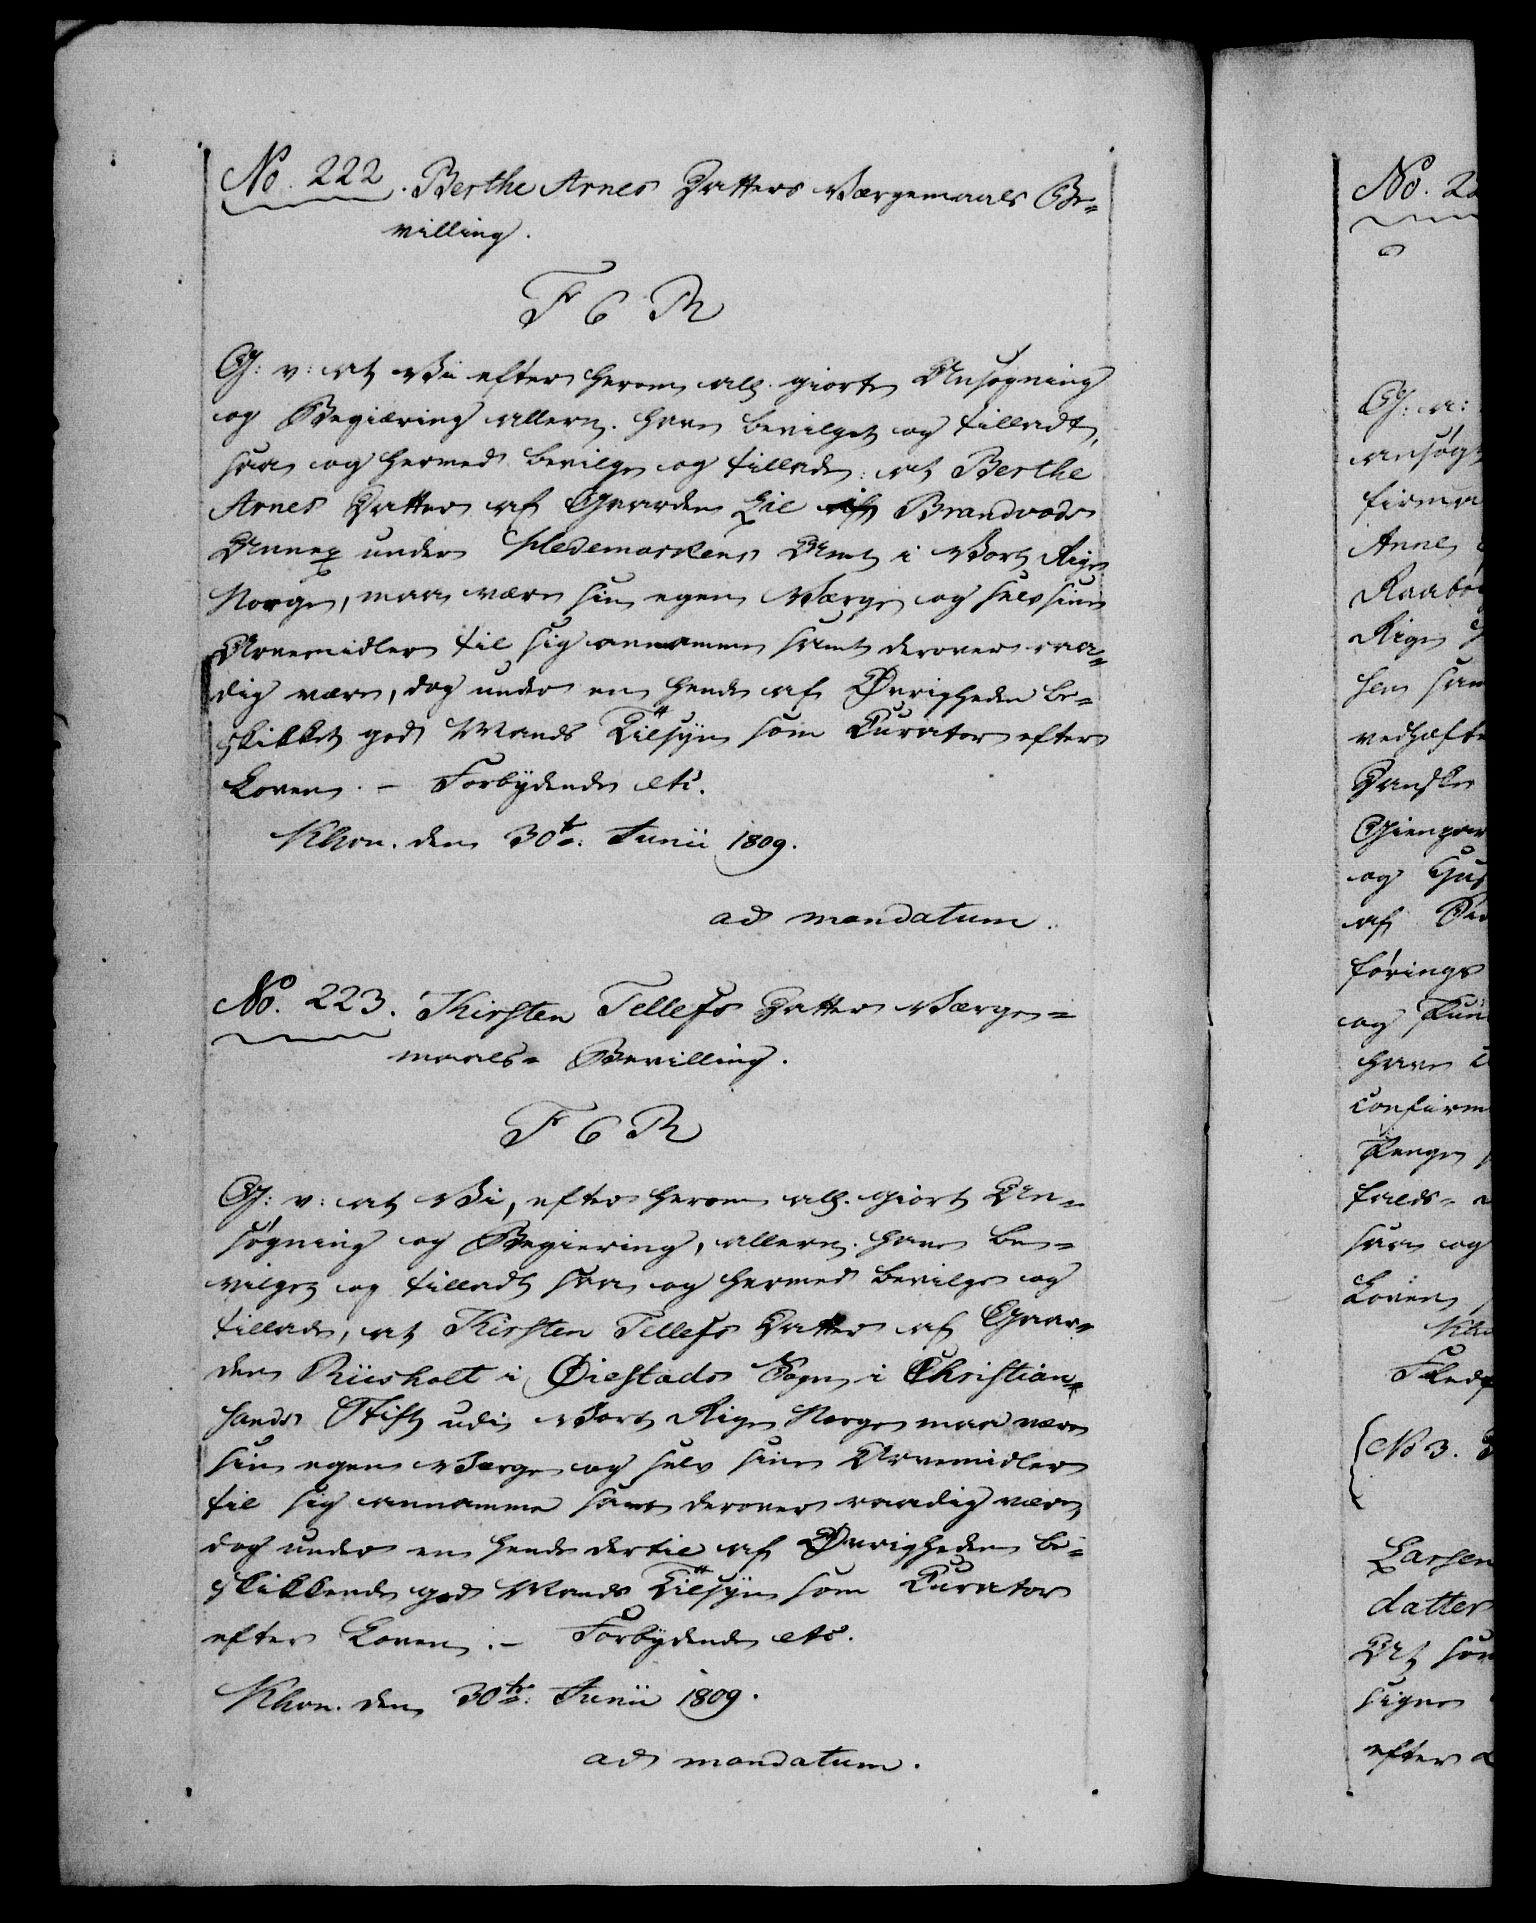 No. 222. Berthe Arnes Datters Værgemaals Be-
villing.
F 6 R
G: v: at Vi efter herom all. giorte Ansøgning
og Begiæring allern. have bevilget og tilladt,
saa og hermed bevilge og tillade: at Berthe
Arnes Datter af Gaarden Lie Brandvods
Annex under Hedemarkens Amt i Vort Rige
Norge, maa være sin egen Værge og selv sine
Arvemidler til sig annamme samt derover raa-
dig være, dog under en hende af Øvrigheden be-
skikket god Mands Tilsyn som Curator efter
Loven. - Forbydende etc.
Khvn. den 30te Junii 1809.
ad mandatum.
No. 223. Kirsten Tellefs Datter Værge-
maals-Bevilling.
F 6 R
G: v: at Vi, efter herom all. giort An-
søgning og Begiering, allern. have be-
vilget og tilladt saa og hermed bevilge og
tillade, at Kirsten Tellefs Datter af Gaar-
den Riisholt i Øiestads Sogn i Christian-
sands Stift udi Vort Rige Norge maa være
sin egen Værge og selv sine Arvemidler
til sig annamme samt derover raadig være,
dog under en hende dertil af Øvrigheden be-
skikkende god Mands Tilsyn som Curator
efter Loven. - Forbydende etc.
Khvn. den 30te Junii 1809.
ad mandatum.
No. 22
G: a:
ansøgt
firma
Anne
Raabø
Rige
sen sam
vedhæfte
Danske
Gienpar
og
af
førings
og
have
confirm
Penge
falds-
saa og
Loven,
Khv
No 3.
Larsen
datter
At
signe
efter